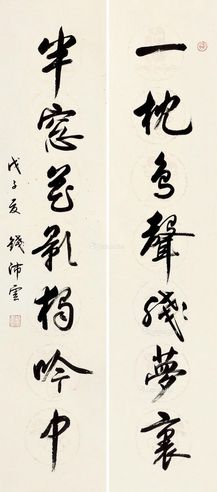 一枕鳥聲殘夢裏
半窓花影獨吟中
戊子夏 錢沛雲